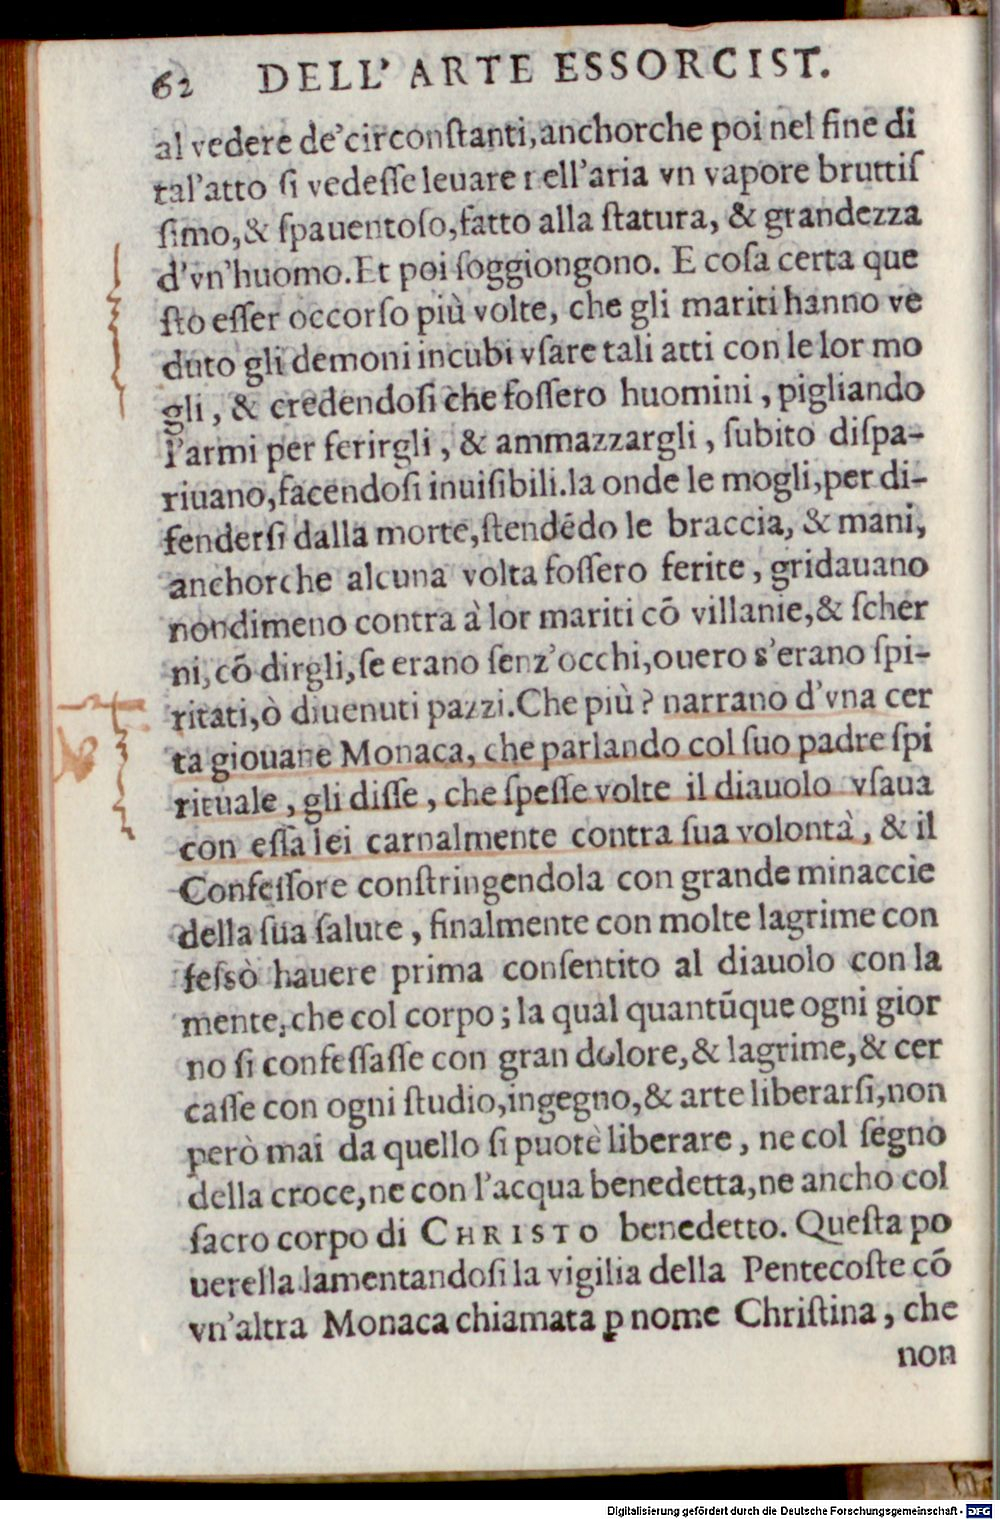 62 DELL' ARTE ESSORCIST.
al vedere de'circonſtanti,anchorche poi nel fine di
tal'atto ſi vedeſſe leuare nell'aria vn vapore bruttiſ
ſimo,& ſpauentoſo,fatto alla ſtatura, & grandezza
d'vn'huomo.Et poi ſoggiongono. E coſa certa que
ſto eſſer occorſo più volte, che gli mariti hanno ve
duto gli demoni incubi vſare tali atti con le lor mo
gli, & credendoſi che foſſero huomini, pigliando
l'armi per ferirgli, & ammazzargli, ſubito diſpa-
riuano,facendoſi inuiſibili.la onde le mogli,per di-
fenderſi dalla morte,ſtendēdo le braccia, & mani,
anchorche alcuna volta foſſero ferite, gridauano
nondimeno contra à lor mariti cō villanie,& ſcher
ni,cō dirgli,ſe erano ſenz'occhi,ouero s'erano ſpi-
ritati,ò diuenuti pazzi.Che più? narrano d'vna cer
ta giouane Monaca, che parlando col ſuo padre ſpi
rituale, gli diſſe, che ſpeſſe volte il diauolo vſaua
con eſſa lei carnalmente contra ſua volontà, & il
Confeſſore conſtringendola con grande minaccie
della ſua ſalute, finalmente con molte lagrime con
feſsò hauere prima conſentito al diauolo con la
mente,che col corpo; la qual quantūque ogni gior
no ſi confeſſaſſe con gran dolore,& lagrime,& cer
caſſe con ogni ſtudio,ingegno,& arte liberarſi,non
però mai da quello ſi puotè liberare, ne col ſegno
della croce,ne con l'acqua benedetta,ne ancho col
ſacro corpo di CHRISTO benedetto. Queſta po
uerella lamentandoſi la vigilia della Pentecoſte cō
vn'altra Monaca chiamata ꝑ nome Chriſtina, che
non
Digitalisierung gefördert durch die Deutsche Forschungsgemeinschaft - DFG